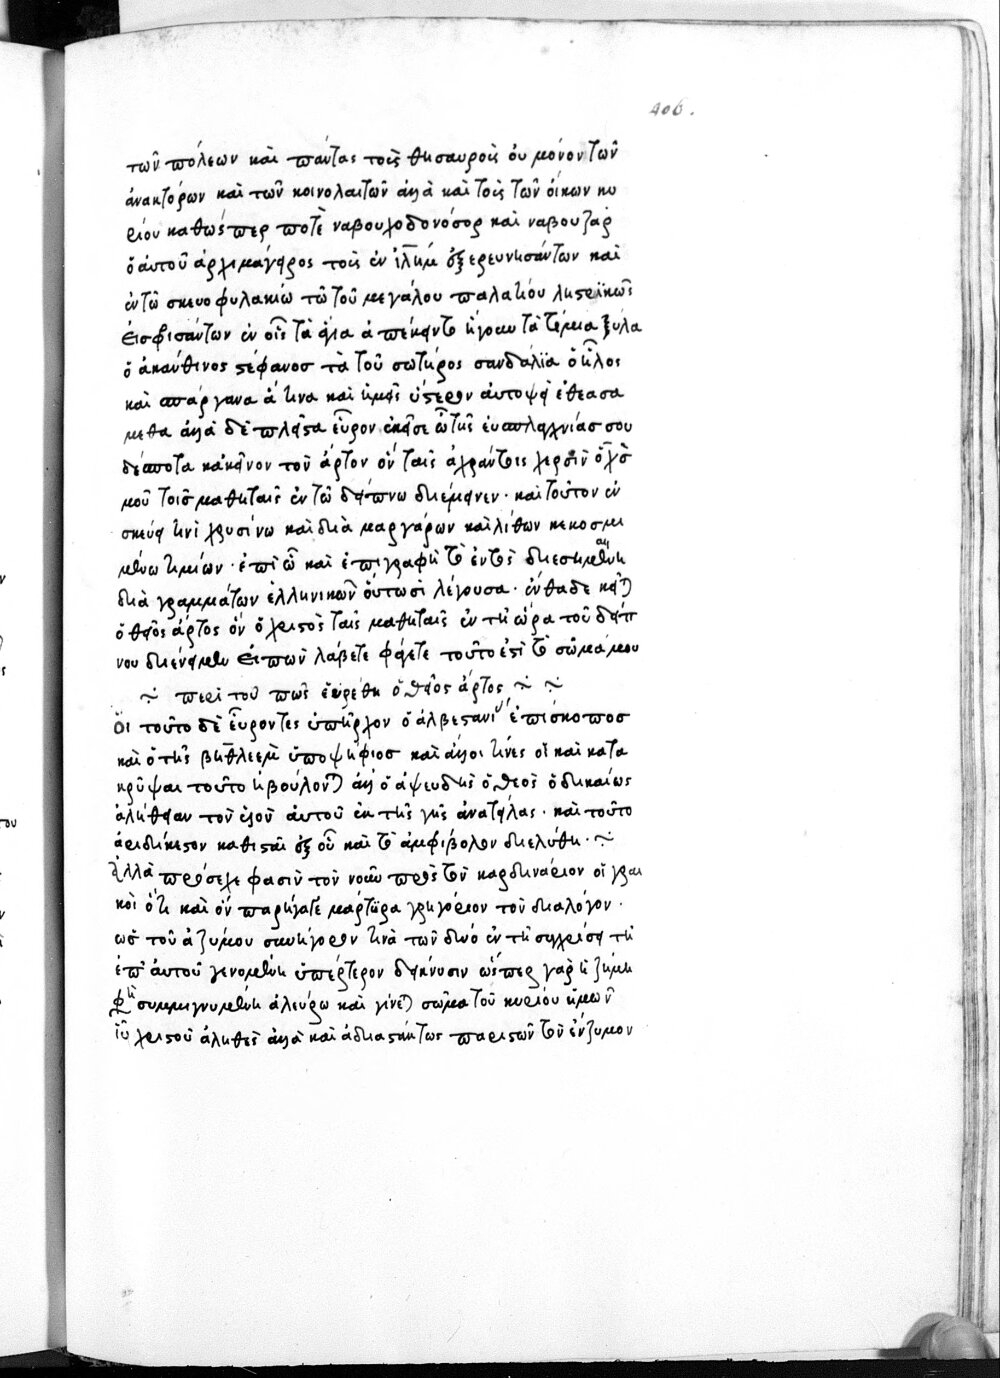 406.
τῶν πόλεων καὶ πάντας τοῖς θησαυροῖς οὐ μόνον τῶν
ἀνακτόρων καὶ τῶν κοινολαιτῶν ἀλλὰ καὶ τοῖς τῶν οἴκων κυ
ρίου καθώσπερ ποτὲ ναβουχοδονόσορ καὶ ναβουζὰρ
ὁ αὐτοῦ ἀρχιμάγειρος τοῖς ἐν ἱλὴμ ἐξερευνησάντων καὶ
ἐν τῶ σκευοφυλακίω τῶ τοῦ μεγάλου παλατίου ληστρικῶς
εἰσφρισάντων ἐν οἷς τὰ ἅγια ἀπέκειντο ἤγουν τὰ τίμια ξύλα
ὁ ἀκάνθινος στέφανος τὰ τοῦ σωτῆρος σανδάλια ὁ ἧλος
καὶ σπάργανα ἅ τινα καὶ ἡμεῖς ὕστερον αὐτοψεὶ ἐθεασά
μεθα ἀλλὰ δὲ πλεῖστα εὗρον ἐκεῖσε ὢ τῆς εὐσπλαγχνίας σου
δέσποτα κἀκεῖνον τὸν ἄρτον ὃν ταῖς ἀχράντοις χερσὶν ὁ χς
μοῦ τοῖς μαθηταῖς ἐν τῶ δείπνω διέμεινεν · καὶ τοῦτον ἐν
σκεύει τινὶ χρυσίνω καὶ διὰ μαργάρων καὶ λίθων κεκοσμη
μένω τιμίων · ἐπὶ ὧ καὶ ἐπιγραφὴ τὸ ἐντὸς διεσημαίνη
διὰ γραμμάτων ἑλληνικῶν οὑτωσὶ λέγουσα · ἐνθάδε κεῖται
ὁ θεῖος ἄρτος ὃν ὁ χριστὸς ταῖς μαθηταῖς ἐν τῆ ὥρα τοῦ δείπ
νου διένειμεν εἰπὼν λάβετε φάγετε τοῦτο ἐστὶ τὸ σῶμά μου
περὶ τοῦ πῶς εὑρέθη ὁ θεῖος ἄρτος
οἱ τοῦτο δὲ εὕροντες ὑπῆρχον ὁ ἀλβεστανίου ἐπίσκοπος
καὶ ὁ τῆς βηθλεὲμ ὑποψήφιος καὶ ἄλλοι τινες οἳ καὶ κατα
κρῦψαι τοῦτο ἠβούλοντο ἀλλ ὁ ἀψευδὴς ὁ θεὸς ὁ δικαίως
ἀλήθειαν τὸν ἐχοῦ αὐτοῦ ἐκ τῆς γῆς ἀνατείλας · καὶ τοῦτο
ἀριδήλεστον καθιστᾶ ἐξ οὗ καὶ τὸ ἀμφίβολον διελύθη ·
ἀλλὰ πρόσεχε φασὶν τὸν νοῦν πρὸς τὸν καρδινάριον οἱ γραι
κοὶ ὅτι καὶ ὃν παρήγαγε μάρτυρα γρηγόριον τὸν διαλόγον ·
ὡς τοῦ ἀζύμου συνήγορον τινὰ τῶν δύο ἐν τῆ συγκρίσει τῆ
ἐπ' αὐτοῦ γενομένη ὑπέρτερον δείκνυσιν ὥσπερ γὰρ ἡ ζύμη
φησὶ συμμιγνυμένη ἀλεύρω καὶ γίνεται σῶμα τοῦ κυρίου ἡμῶν
ἰῦ χριστοῦ ἀληθὲς ἀλλὰ καὶ ἀδιαστάτως παριστῶν τὸν ἔνζυμον